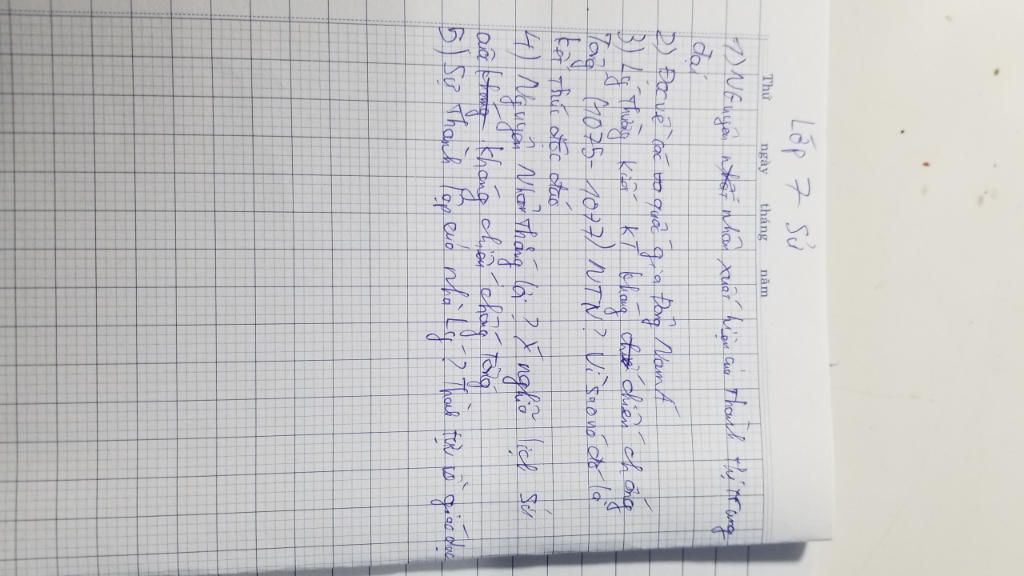 Lớp 7 Sử
Thứ ngày tháng năm
1) Nguyên nhân xuất hiện của Thành thị trung
đại
2) Đọc về các quốc gia Đông Nam Á
3) Lý Thường Kiệt KT kháng chiến chống
Tống (1075-1077) NTN? Vì sao nó đó là
kết thúc độc đáo
4) Nguyên Nhân thắng là? Ý nghĩa lịch sử
của kháng chiến chống Tống
5) Sự Thành lập của nhà Lý? Thành tựu về giáo dục